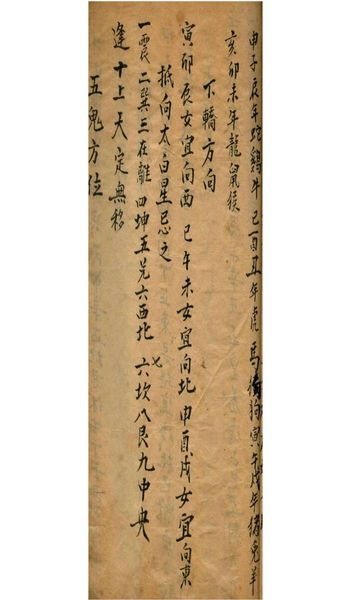 申子辰年蛇鷄牛 巳酉丑年虎馬狗 寅午戌年猪兎羊
亥卯未年龍鼠猴
下轎方向
寅卯辰女宜向西 巳午未女宜向北 申酉戌女宜向東
抵向太白星忌之
一震二巽三在離四坤五兑六西北 七六坎八艮九中央
逢十上天定無移
五鬼方位